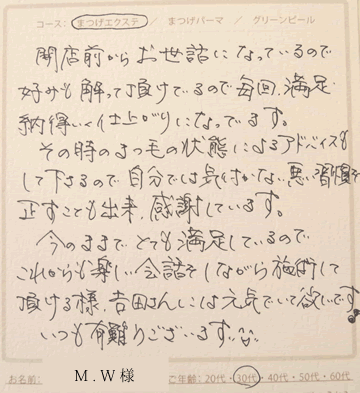 コース：まつげエクステ ／ まつげパーマ ／ グリーンピール
開店前からお世話になっているので
好みも解って頂けてるので毎回、満足・
納得いく仕上がりになってます。
その時のまつ毛の状態によるアドバイスも
して下さるので自分では気付かない悪い習慣を
正すことも出来、感謝しています。
今のままでとても満足しているので
これからも楽しい会話をしながら施術して
頂ける様、吉田さんには元気でいて欲しいです。
いつも有難うございます。
お名前： M.W様 ご年齢：20代・30代・40代・50代・60代